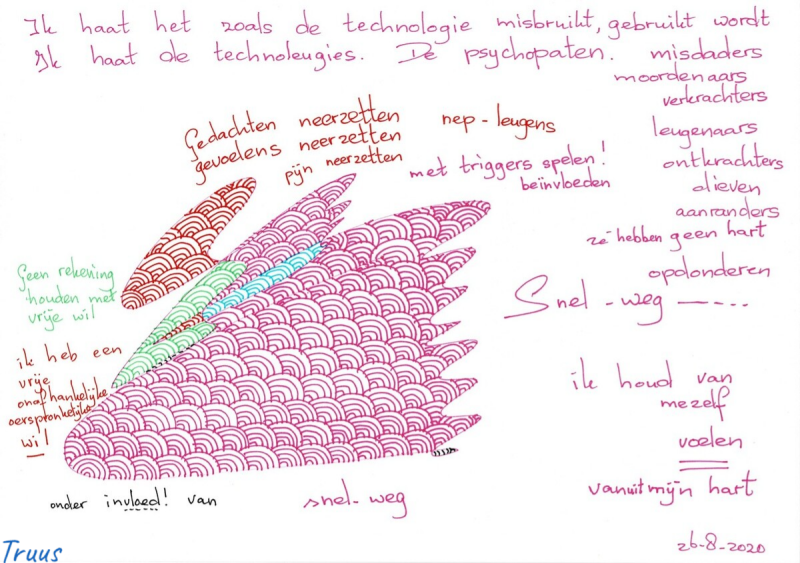 Ik haat het zoals de technologie misbruikt, gebruikt wordt
Ik haat de technoleugies. De psychopaten. misdaders
moordenaars
verkrachters
leugenaars
ontkrachters
dieven
aanranders
ze hebben geen hart
opdonderen
Gedachten neerzetten
gevoelens neerzetten
pijn neerzetten
nep - leugens
met triggers spelen!
beïnvloeden
Snel - weg
Geen rekening
houden met
vrije wil
ik heb een
vrije
onafhankelijke
oerspronkelijke
wil
ik houd van
mezelf
voelen
vanuit mijn hart
onder invloed! van
snel-weg
26-8-2020
Truus